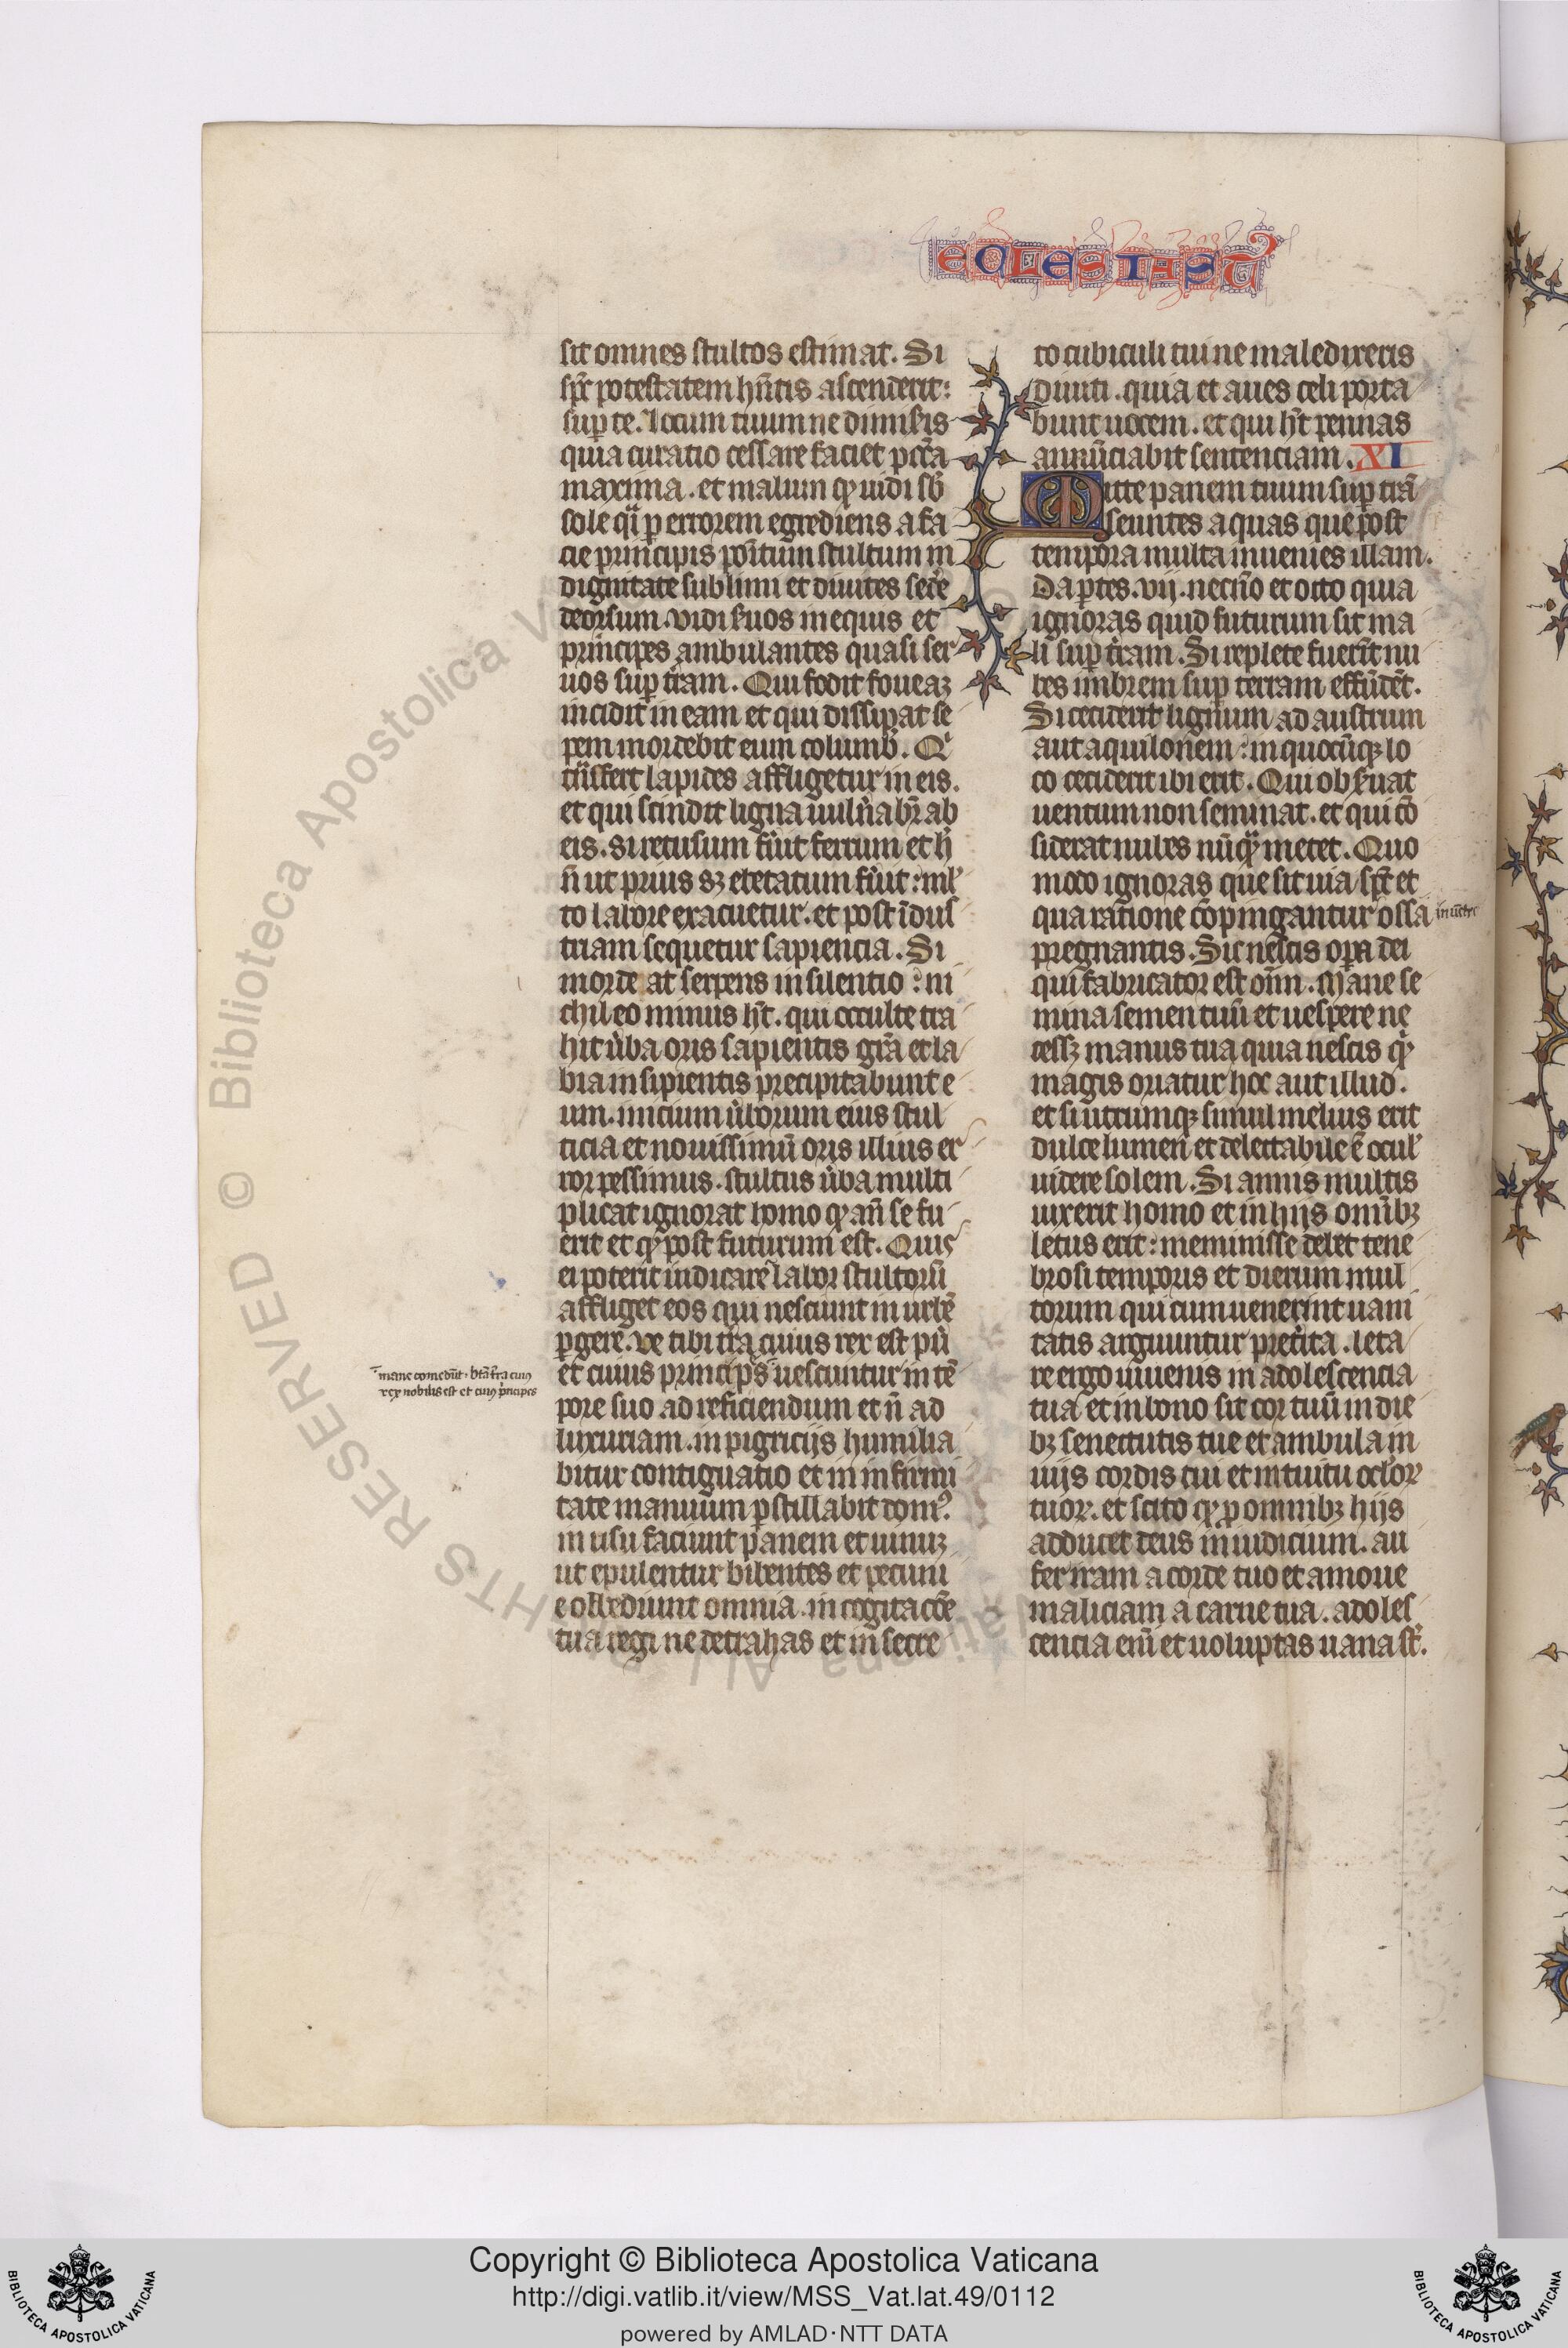 ECLESIAST᷑
sit omnes stultos estimat. Si
sp̄r potestatem hn̄tis ascenderit:
suꝑ te. locum tuum ne dimis̾is
quia curatio cessare faciet pct̄a
maxima. et malum qͥ uidi sb̾
sole qͣi ꝑ errorem egrediens a fa
cie principis poītum stultum in
dignitate sublimi et diuites sed̾e
deorsum. vidi s̾uos in equis et
principes ambulantes quasi ser
uos suꝑ t̾ram. Qui fodit foueaꝫ
incidit in eam et qui dissipat se
pem mordebit eum colub̾. Qͥ
tn̄sfert lapides affligetur in eis.
et qui scindit ligna uuln̾abr̄ ab
eis. si retusum fu̾it ferrum et h̾
n̄ ut prius sꝫ ebetatum fu̾it: ml̾
to labore exacuetur. et post īdus
triam sequetur sapiencia. Si
morde at serpens in silentio: ni
chil eo minus hꝫ. qui occulte tra
hit u̾ba oris sapientis gr̄a et la
bia insipientis precipitabunt e
um. inicium u̾borum eius stul
ticia et nouissimū oris illius er
ror pessimus. stultus u̾ba multi
plicat ignorat homo qͥ an̄ se fu
erit et qͥ post futurum est. Quis
ei poterit indicare labor stultorū
affliget eos qui nesciunt in urbē
ꝑgere. ve tibi tr̄a cuius rex est pu̾
et cuius principes uescuntur in tē
pore suo ad reficiendum et n̄ ad
luxuriam. in pigricijs humilia
bitur contignatio et in infirmi
tate manuum ꝑstillabit domꝰ.
in usu faciunt panem et uinuꝫ
ut epulentur bibentes et pecuni
e obediunt omnia. in cogitacōe
tua regi ne detrahas et in secre
mane comedūt. btā tr̄a cuiꝰ
rex nobilis est et cuiꝰ p̾ncipes
to cubiculi tui ne maledixeris
diuiti. quia et aues celi porta
bunt uocem. et qui hꝫ pennas
annūciabit sentenciam. XI
Mitte panem tuum suꝑ trā
seuntes aquas que post
tempora multa inuenies illam.
Da ꝑtes. vij. necn̄o et octo quia
ignoras quid futurum sit ma
li suꝑ t̾ram. Si replete fuer̄it nu
bes imbrem suꝑ terram effūdēt.
Si ceciderit lignum ad austrum
aut aquilonem: in quocūqꝫ lo
co ceciderit ibi erit. Qui obs̾uat
uentum non seminat. et qui cō
siderat nubes nūqͣ metet. Quo
modo ignoras que sit uia sp̄c et
qua ratione cōpingantur ossa
in uētre
pregnantis. Sic nescis oꝑa dei
qui fabricator est oīm. Mane se
mina semen tuū et uespere ne
cessꝫ manus tua quia nescis qͥ
magis oriatur hoc aut illud.
et si utrumqꝫ simul melius erit
dulce lumen et delectabile ē ocul̾
uidere solem. Si annis multis
uixerit homo et in hijs omībꝫ
letus erit: meminisse debet tene
brosi temporis et dierum mul
torum qui cum uenerint uani
tatis arguuntur pret̾ita. leta
re ergo iuuenis in adolescencia
tua et in bono sit cor tuū in die
bꝫ senectutis tue et ambula in
uijs cordis tui et in tuitu ocl̾oꝝ
tuoꝝ. et scito qͥ ꝓ omnibꝫ hijs
adducet deus in iudicium. au
fer iram a corde tuo et amoue
maliciam a carne tua. adoles
cencia enī et uoluptas uana st̄.
Copyright © Biblioteca Apostolica Vaticana
http://digi.vatlib.it/view/MSS_Vat.lat.49/0112
powered by AMLAD·NTT DATA
BIBLIOTECA APOSTOLICA VATICANA
BIBLIOTECA APOSTOLICA VATICANA